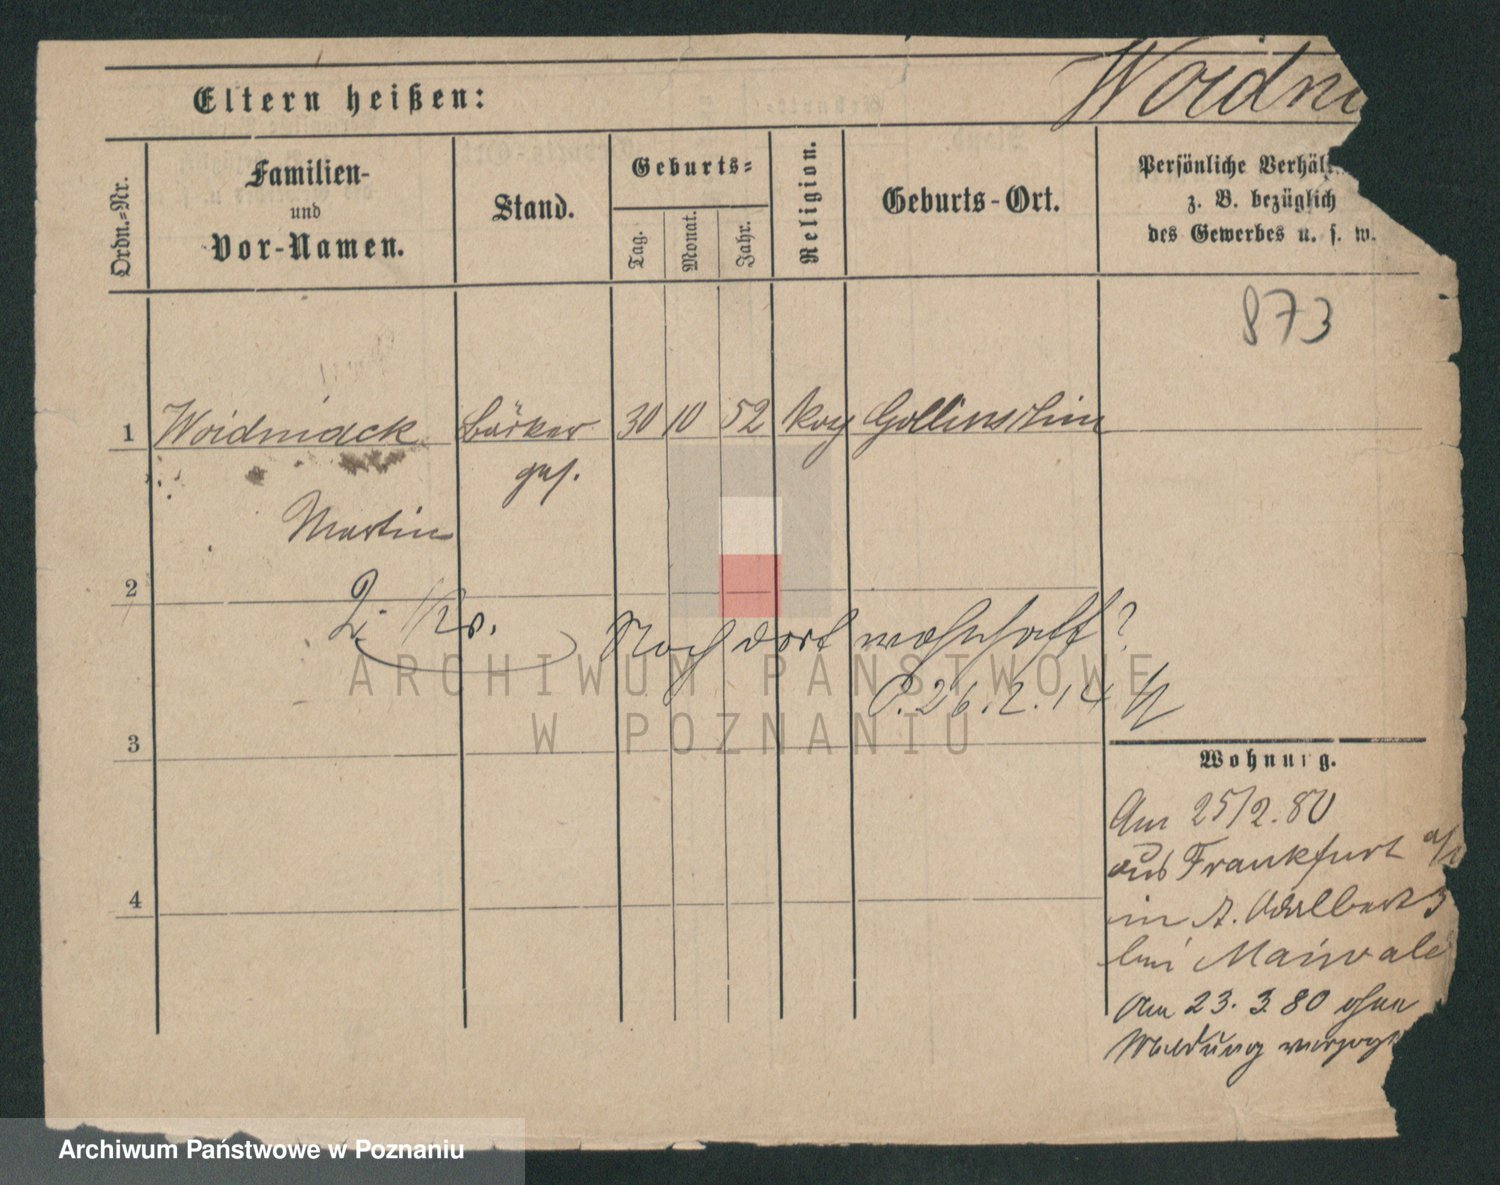 Woidni
Eltern heißen:
Ordn.=Nr.
Familien-
und
Vor-Namen.
Stand.
Geburts=
Tag.
Monat.
Jahr.
Religion.
Geburts-Ort.
Persönliche Verhäl
z. B. bezüglich
des Gewerbes u. s. w.
873
1 Woidniack Bäcker 30 10 52
ges.
Martin
2
Noch dort wohnhaft?
P. 26.2.14
3
Wohnung.
Am 25/2. 80
aus Frankfurt a/
in St. Adalbert 3
bei Maiwald
4
Am 23. 3 80 ohne
Meldung verzogen
ARCHIWUM PAŃSTWOWE
W POZNANIU
Archiwum Państwowe w Poznaniu